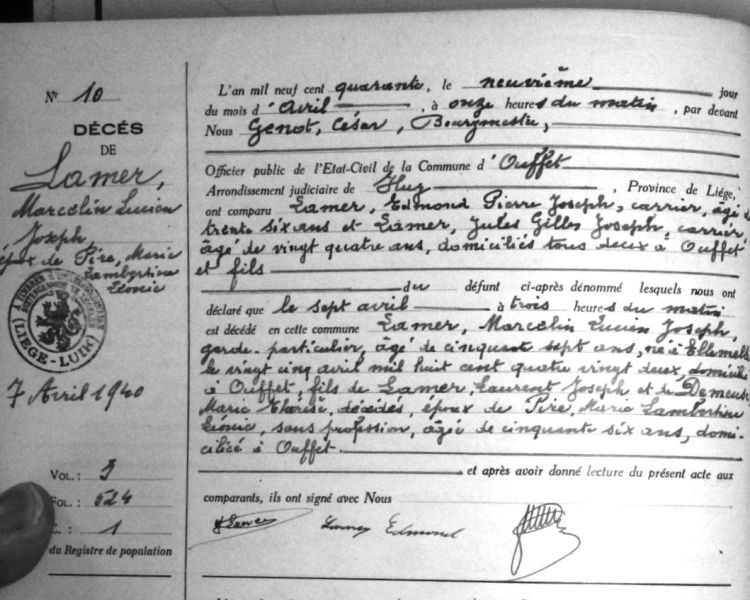 N° 10
DÉCÉS
DE
Lamer,
Marcelin Lucien
Joseph
époux de Pire, Marie
Lambertine
Léonie
LIEGE-LUIK
7 Avril 1940
VOL.: 3
FOL.: 524
: 1
du Registre de population
L'an mil neuf cent quarante, le neuvième jour
du mois d'Avril, à onze heures du matin, par devant
Nous Genot, César, Bourgmestre,
Officier public de l'Etat-Civil de la Commune d'Ouffet
Arrondissement judiciaire de Huy, Province de Liége,
ont comparu Lamer, Edmond Pierre Joseph, carrier, âgé de
trente six ans et Lamer, Jules Gilles Joseph, carrier
âgé de vingt quatre ans, domiciliés tous deux à Ouffet
et fils
du défunt ci-après dénommé lesquels nous ont
déclaré que le sept avril à trois heures du matin
est décédé en cette commune Lamer, Marcelin Lucien Joseph,
garde-particulier, âgé de cinquante sept ans, né à Ellemelle
le vingt cinq avril mil huit cent quatre vingt deux, domicilié
à Ouffet, fils de Lamer, Laurent Joseph et de
Marie Thérèse, décédés, époux de Pire, Marie Lambertine
Léonie, sans profession, âgée de cinquante six ans, domi-
ciliée à Ouffet.
et après avoir donné lecture du présent acte aux
comparants, ils ont signé avec Nous
J Lamer Lamer Edmond